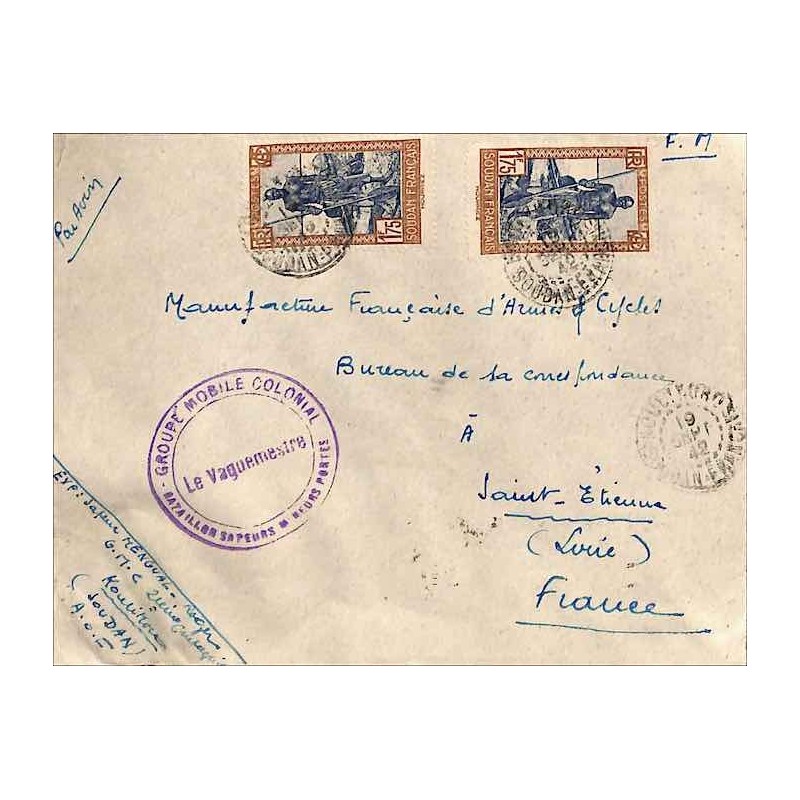 F. M
Par Avion
RF
POSTES
1F75
SOUDAN FRANÇAIS
1F75
SOUDAN FRANÇAIS
POSTES
RF
SOUDAN FRANÇAIS
Manufacture Française d'Armes & Cycles
Bureau de sa correspondance
À
Saint-Étienne
(Loire)
France
GROUPE MOBILE COLONIAL
Le Vaguemestre
BATAILLON SAPEURS M NEURS PORTES
KOULIKORO
19
SEPT
42
SOUDAN FRANÇAIS
EXP: Sapeur MENGUAL Roger
G.M.C 2ème Compagnie
Koulikoro
(SOUDAN)
A.O.F